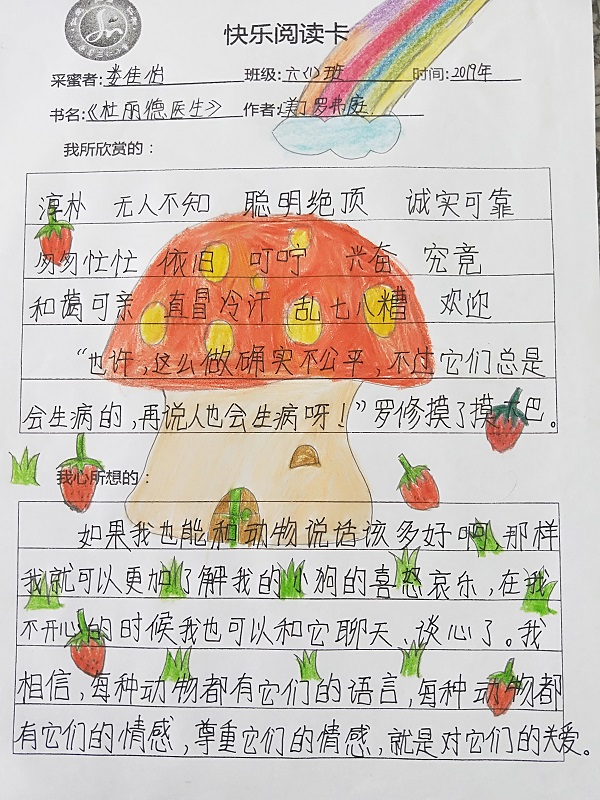 快乐阅读卡
采蜜者:娄佳怡 班级:六(1)班 时间:2019年
书名:《杜丽德医生》 作者:美丁罗弗庭.
我所欣赏的：
淳朴 无人不知 聪明绝顶 诚实可靠
匆匆忙忙 依旧 叮咛 兴奋 究竟
和蔼可亲 直冒冷汗 乱七八糟 欢迎
“也许,这么做确实不公平,不过它们总是
会生病的,再说人也会生病呀!”罗修摸了摸下巴。
我心所想的：
如果我也能和动物说话该多好啊,那样
我就可以更加了解我的小狗的喜怒哀乐,在我
不开心的时候我也可以和它聊天、谈心了。我
相信,每种动物都有它们的语言,每种动物都
有它们的情感,尊重它们的情感,就是对它们的关爱。